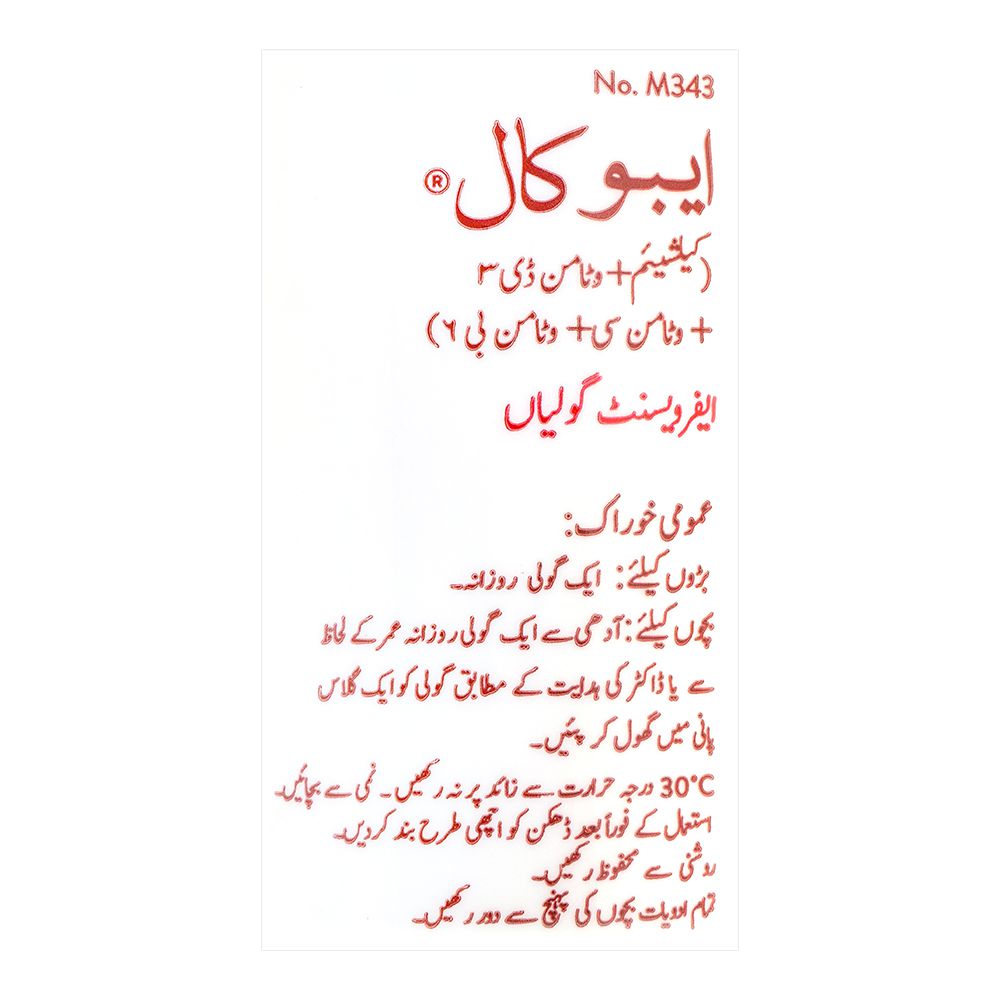 No. M343
ایبو کال®
(کیلشیئم + وٹامن ڈی ۳
+ وٹامن سی + وٹامن بی ٦)
ایفرویسنٹ گولیاں
عمومی خوراک:
بڑوں کیلئے: ایک گولی روزانہ۔
بچوں کیلئے: آدھی سے ایک گولی روزانہ عمر کے لحاظ
سے یا ڈاکٹر کی ہدایت کے مطابق گولی کو ایک گلاس
پانی میں گھول کر پئیں۔
30°C درجہ حرارت سے زائد پر نہ رکھیں۔ نمی سے بچائیں۔
استعمال کے فوراً بعد ڈھکن کو اچھی طرح بند کردیں۔
روشنی سے محفوظ رکھیں۔
تمام ادویات بچوں کی پہنچ سے دور رکھیں۔